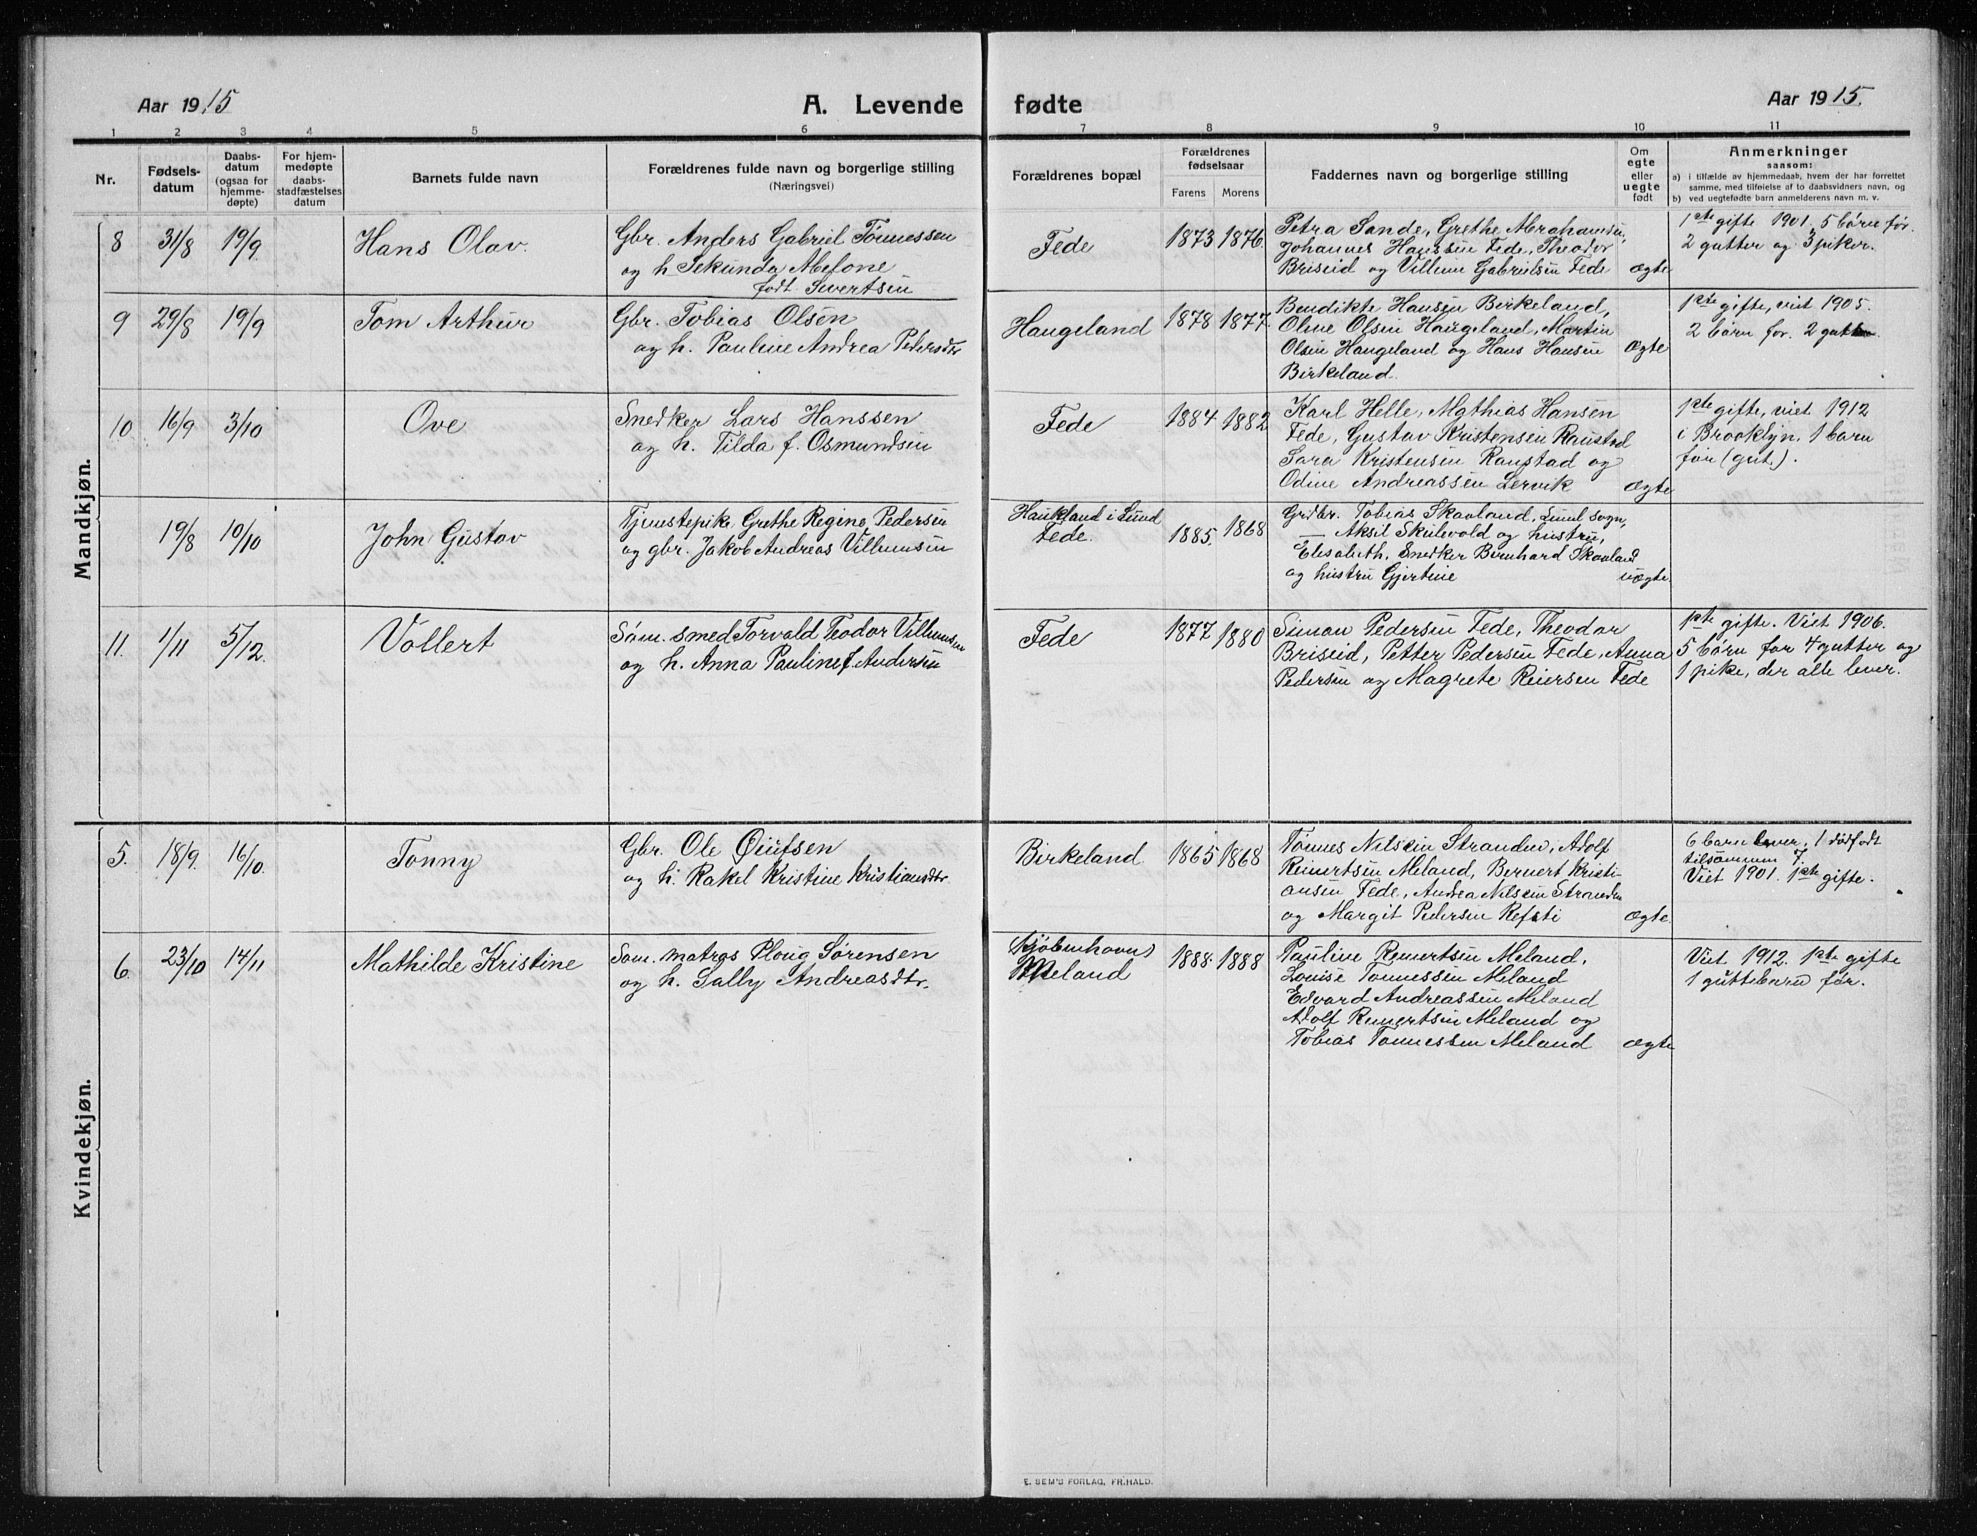 Aar 1915
A. Levende fødte
Aar 1915.
1 2 3 4 5 6 7 8 9 10 11
Nr.
Fødsels-
datum
Daabs-
datum
(ogsaa for
hjemme-
døpte)
For hjem-
medøpte
daabs-
stadfæstelses
datum
Barnets fulde navn
Forældrenes fulde navn og borgerlige stilling
(Næringsvei)
Forældrenes bopæl
Forældrenes
fødselsaar
Farens Morens
Faddernes navn og borgerlige stilling
Om
egte
eller
uegte
født
Anmerkninger
saasom:
a) i tilfælde av hjemmedaab, hvem der har forrettet
samme, med tilføielse af to daabsvidners navn, og
b) ved uegtefødte barn anmelderens navn m. v.
Mandkjøn.
8 31/8 19/9 Hans Olav.
Gbr. Anders Gabriel Tønnessen
og h. Sekunda Abefone
født Sivertsen
Fede 1873 1876.
Petra Sande, Grethe Abrahamsen,
Johannes Hanssen Fede, Theodor
Briseid og Villum Gabrielsen Fede
ægte
1ste gifte 1901. 5 børn før.
2 gutter og 3 piker.
9 29/8 19/9 Tom Arthur
Gbr. Tobias Olsen
og h. Pauline Andrea Pedersdtr
Haugeland 1878 1877.
Bendikte Hansen Birkeland,
Oline Olsen Haugeland, Martin
Olsen Haugeland og Hans Hansen
Birkeland.
ægte
1ste gifte, viet 1905.
2 børn før. 2 gutter.
10 16/9 3/10 Ove
Snedker Lars Hanssen
og h. Tilda f. Osmundsen
Fede 1884 1882
Karl Helle, Mathias Hansen
Fede, Gustav Kristensen Raustad
Sara Kristensen Raustad og
Odine Andreassen Lervik
ægte
1ste gifte, viet 1912
i Brooklyn. 1 barn
før (gut.).
19/8 10/10 John Gustav
Tjenestepike Grethe Regine Pedersen
og gbr. Jakob Andreas Villumsen
Haukland i Lund
Fede. 1885. 1868
Grdbr. Tobias Skavland, Lund sogn,
— Aksil Skulevold og hustru,
Elisabeth, Snedker Bernhard Skavland
og hustru Gjertine
uægte.
11. 1/11 5/12. Vollert
Søm. smed Torvald Teodor Villumsen
og h. Anna Pauline f. Andersen
Fede 1877 1880
Simon Pedersen Fede, Theodor
Briseid, Petter Pedersen Fede, Anna
Pedersen og Magrete Reiersen Fede
1ste gifte. Viet 1906.
5 børn før 4 gutter og
1 pike, der alle lever.
Kvindekjøn.
5. 18/9. 16/10. Tonny
Gbr. Ole Øiufsen
og h. Rakel Kristine Kristiansdtr.
Birkeland 1865 1868
Tønnes Nilsen Stranden, Adolf
Reinertsen Meland, Bernert Kristi-
ansen Fede, Andrea Nilsen Stranden
og Margit Pedersen Refsti
ægte
6 barn lever, 1 dødfødt
tilsammen 7.
Viet 1901. 1ste gifte.
6. 23/10 14/11 Mathilde Kristine
Søm. matros Ploug Sørensen
og h. Salby Andreasdtr.
Kjøbenhavn
Meland 1888. 1888
Pauline Reinertsen Meland,
Louise Tønnessen Meland
Edvard Andreassen Meland
Adolf Reinertsen Meland og
Tobias Tønnessen Meland
ægte
Viet 1912. 1ste gifte
1 guttebarn før.
E. SEM'S FORLAG, FR.HALD.